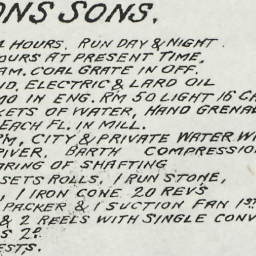 ONS SONS.
HOURS. RUN DAY & NIGHT.
OURS AT PRESENT TIME,
AM. COAL GRATE IN OFF.
ID, ELECTRIC & LARD OIL
MO IN ENG. RM 50 LIGHT 16 CA
KETS OF WATER, HAND GRENAD
EACH FL. IN MILL.
PM, CITY & PRIVATE WATER W
RIVER, BARTH COMPRESSION
ARING OF SHAFTING
SETS ROLLS, 1 RUN STONE,
, 1 IRON CONE 20 REV'S
PACKER & 1 SUCTION FAN 1ST
& 2 REELS WITH SINGLE CONV
S 2D
ESTS.